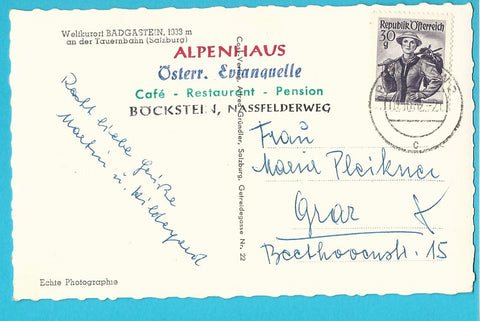 Weltkurort BADGASTEIN, 1033 m
an der Tauernbahn (Salzburg)
ALPENHAUS
Österr. Evianquelle
Café - Restaurant - Pension
BÖCKSTEIN, NASSFELDERWEG
Republik Österreich
30
g
Recht liebe Grüße
Martin u. Hildegard
Gründler, Salzburg, Getreidegasse Nr. 22
Frau
Maria Pleikner
Graz
Beethovenstr. 15
Echte Photographie